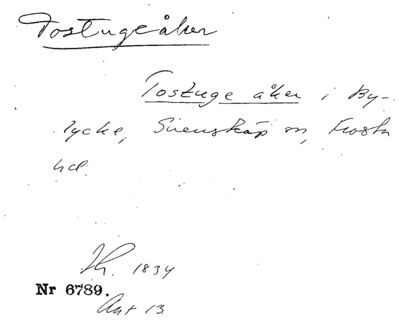 Tostugeåker
Tostuge åker i By-
lycke, Svensköp sn, Frosta
hd.
Th. 1834
Nr 6789.
Ant 13